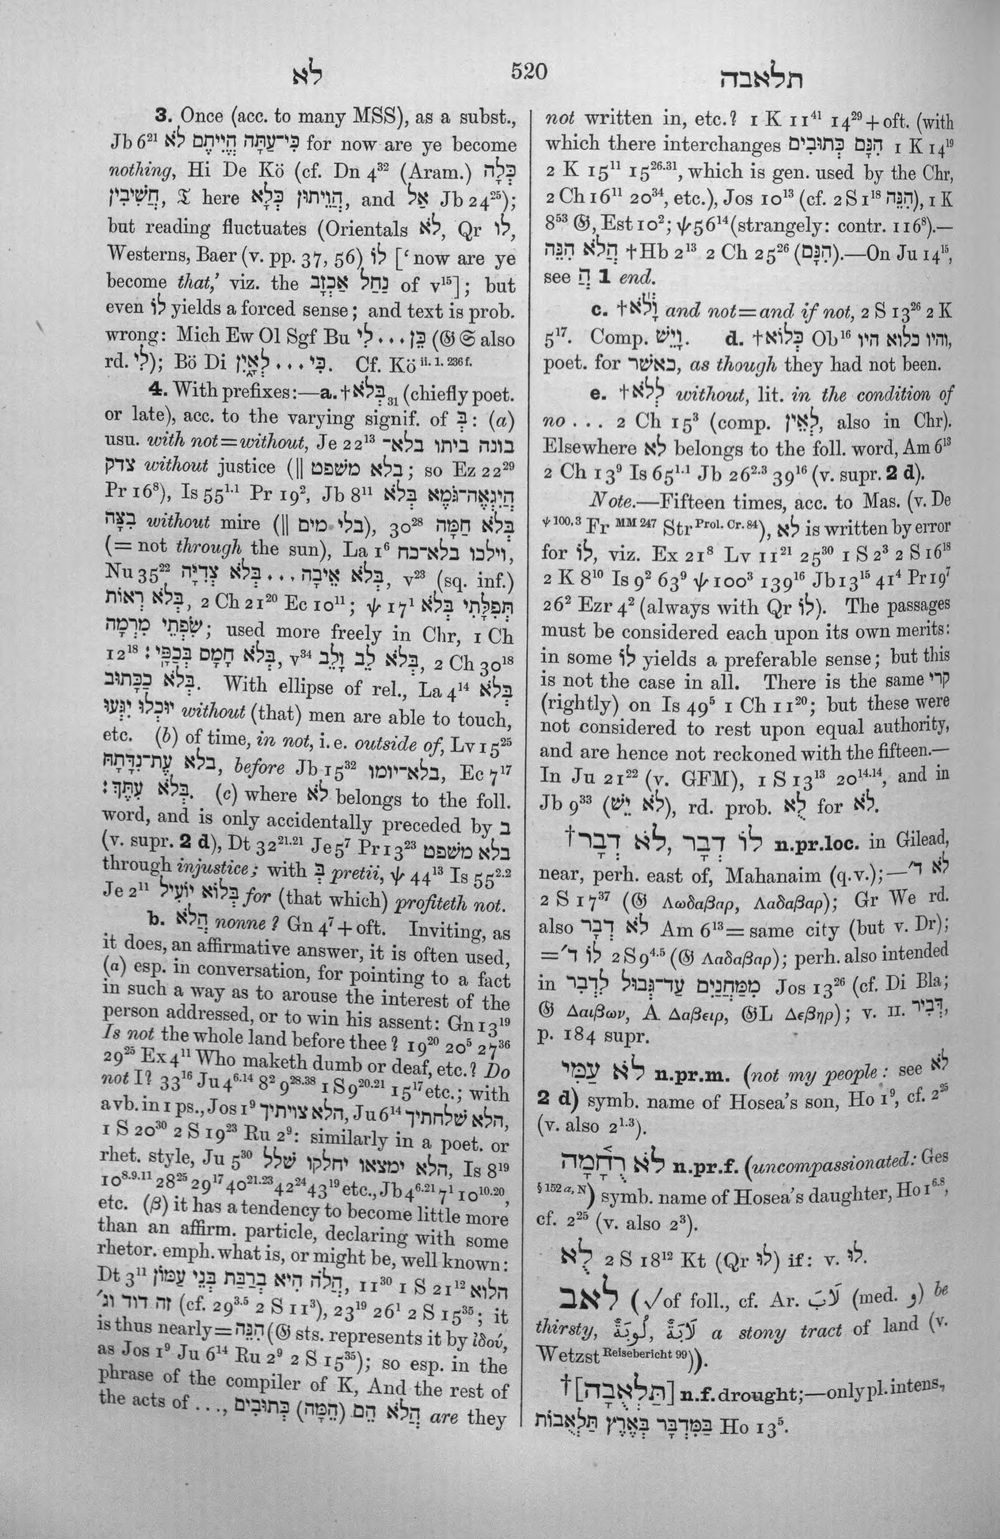 לא
520
תלאבה
3. Once (acc. to many MSS), as a subst.,
Jb 6²¹ כִּי־עַתָּה הֱיִיתֶם לֹא for now are ye become
nothing, Hi De Kö (cf. Dn 4³² (Aram.) כְּלָה
חֲשִׁיבִין, 𝔗 here הֲוֵיתוּן כְּלָא, and אַל Jb 24²⁵);
but reading fluctuates (Orientals לֹא, Qr לוֹ,
Westerns, Baer (v. pp. 37, 56) לוֹ [‘now are ye
become that,’ viz. the נַחַל אַכְזָב of v¹⁵]; but
even לוֹ yields a forced sense; and text is prob.
wrong: Mich Ew Ol Sgf Bu כֵּן . . . לִי (𝔊 𝔖 also
rd. לִי); Bö Di כִּי . . . לְאָיִן. Cf. Kö ii. 1. 236 f.
4. With prefixes:—a. †בְּלֹא₃₁ (chiefly poet.
or late), acc. to the varying signif. of בְּ: (a)
usu. with not=without, Je 22¹³ בונה ביתו בלא־
צדק without justice (|| בלא משפט; so Ez 22²⁹
Pr 16⁸), Is 55¹·¹ Pr 19², Jb 8¹¹ הֲיִגְאֶה־גֹּמֶא בְּלֹא
בִצָּה without mire (|| בלי מים), 30²⁸ בְּלֹא חַמָּה
(= not through the sun), La 1⁶ וילכו בלא־כח,
Nu 35²² בְּלֹא אֵיבָה . . . בְּלֹא צְדִיָּה, v²³ (sq. inf.)
בְּלֹא רְאוֹת, 2 Ch 21²⁰ Ec 10¹¹; ψ 17¹ תְּפִלָּתִי בְּלֹא
שִׂפְתֵי מִרְמָה; used more freely in Chr, 1 Ch
12¹⁸ בְּלֹא חָמָס בְּכַפַּי:, v³⁴ בְּלֹא לֵב וָלֵב, 2 Ch 30¹⁸
בְּלֹא כַכָּתוּב. With ellipse of rel., La 4¹⁴ בְּלֹא
יוּכְלוּ יִגְּעוּ without (that) men are able to touch,
etc. (b) of time, in not, i.e. outside of, Lv 15²⁵
בלא עֶת־נִדָּתָהּ, before Jb 15³² בלא־יומו, Ec 7¹⁷
בְּלֹא עִתֶּךָ:. (c) where לֹא belongs to the foll.
word, and is only accidentally preceded by ב
(v. supr. 2 d), Dt 32²¹·²¹ Je 5⁷ Pr 13²³ בלא משפט
through injustice; with בְּ pretii, ψ 44¹³ Is 55²·²
Je 2¹¹ בְּלוֹא יוֹעִיל for (that which) profiteth not.
b. הֲלֹא nonne? Gn 4⁷ + oft. Inviting, as
it does, an affirmative answer, it is often used,
(a) esp. in conversation, for pointing to a fact
in such a way as to arouse the interest of the
person addressed, or to win his assent: Gn 13¹⁹
Is not the whole land before thee? 19²⁰ 20⁵ 27³⁶
29²⁵ Ex 4¹¹ Who maketh dumb or deaf, etc.? Do
not I? 33¹⁶ Ju 4⁶·¹⁴ 8² 9²⁸·³⁸ 1 S 9²⁰·²¹ 15¹⁷ etc.; with
a vb. in 1 ps., Jos 1⁹ הלא צויתיך, Ju 6¹⁴ הלא שלחתיך,
1 S 20³⁰ 2 S 19²³ Ru 2⁹: similarly in a poet. or
rhet. style, Ju 5³⁰ הלא ימצאו יחלקו שלל, Is 8¹⁹
10⁸·⁹·¹¹ 28²⁵ 29¹⁷ 40²¹·²³ 42²⁴ 43¹⁹ etc., Jb 4⁶·²¹ 7¹ 10¹⁰·²⁰,
etc. (β) it has a tendency to become little more
than an affirm. particle, declaring with some
rhetor. emph. what is, or might be, well known:
Dt 3¹¹ הֲלֹה הִיא בְּרַבַּת בְּנֵי עַמּוֹן, 11³⁰ 1 S 21¹² הלוא
זה דוד וג׳ (cf. 29³·⁵ 2 S 11³), 23¹⁹ 26¹ 2 S 15³⁵; it
is thus nearly = הִנֵּה (𝔊 sts. represents it by ἰδού,
as Jos 1⁹ Ju 6¹⁴ Ru 2⁹ 2 S 15³⁵); so esp. in the
phrase of the compiler of K, And the rest of
the acts of . . ., הֲלֹא הֵם (הֵמָּה) כְּתוּבִים are they
not written in, etc.? 1 K 11⁴¹ 14²⁹ + oft. (with
which there interchanges הִנָּם כְּתוּבִים 1 K 14¹⁹
2 K 15¹¹ 15²⁶·³¹, which is gen. used by the Chr,
2 Ch 16¹¹ 20³⁴, etc.), Jos 10¹³ (cf. 2 S 1¹⁸ הִנֵּה), 1 K
8⁵³ 𝔊, Est 10²; ψ 56¹⁴ (strangely: contr. 116⁸).—
הֲלֹא הִנֵּה †Hb 2¹³ 2 Ch 25²⁶ (הִנָּם).—On Ju 14¹⁵,
see הֲ 1 end.
c. †וָלֹא and not=and if not, 2 S 13²⁶ 2 K
5¹⁷. Comp. וָיֵשׁ. d. †כְּלוֹא Ob¹⁶ והיו כלוא היו,
poet. for כַּאֲשֶׁר, as though they had not been.
e. †לְלֹא without, lit. in the condition of
no . . . 2 Ch 15³ (comp. לְאֵין, also in Chr).
Elsewhere לֹא belongs to the foll. word, Am 6¹³
2 Ch 13⁹ Is 65¹·¹ Jb 26²·³ 39¹⁶ (v. supr. 2 d).
Note.—Fifteen times, acc. to Mas. (v. De
ψ 100, 3 Fr MM 247 Str Prol. Cr. 84), לֹא is written by error
for לוֹ, viz. Ex 21⁸ Lv 11²¹ 25³⁰ 1 S 2³ 2 S 16¹⁸
2 K 8¹⁰ Is 9² 63⁹ ψ 100³ 139¹⁶ Jb 13¹⁵ 41⁴ Pr 19⁷
26² Ezr 4² (always with Qr לוֹ). The passages
must be considered each upon its own merits:
in some לוֹ yields a preferable sense; but this
is not the case in all. There is the same קרי
(rightly) on Is 49⁵ 1 Ch 11²⁰; but these were
not considered to rest upon equal authority,
and are hence not reckoned with the fifteen.—
In Ju 21²² (v. GFM), 1 S 13¹³ 20¹⁴·¹⁴, and in
Jb 9³³ (לֹא יֵשׁ), rd. prob. לֻא for לֹא.
† לוֹ דְבָר, לֹא דְבָר n.pr.loc. in Gilead,
near, perh. east of, Mahanaim (q.v.);—לֹא ד׳
2 S 17³⁷ (𝔊 Λωδαβαρ, Λαδαβαρ); Gr We rd.
also לֹא דְבָר Am 6¹³ = same city (but v. Dr);
= לוֹ ד׳ 2 S 9⁴·⁵ (𝔊 Λαδαβαρ); perh. also intended
in מִמַּחֲנַיִם עַד־גְּבוּל לִדְבִר Jos 13²⁶ (cf. Di Bla;
𝔊 Δαιβων, A Δαβειρ, 𝔊L Δεβηρ); v. II. דְּבִיר,
p. 184 supr.
לֹא עַמִּי n.pr.m. (not my people: see לֹא
2 d) symb. name of Hosea’s son, Ho 1⁹, cf. 2²⁵
(v. also 2¹·³).
לֹא רֻחָמָה n.pr.f. (uncompassionated: Ges
§ 152 a, N) symb. name of Hosea’s daughter, Ho 1⁶·⁸,
cf. 2²⁵ (v. also 2³).
לֻא 2 S 18¹² Kt (Qr לוּ) if: v. לוּ.
לאב (√of foll., cf. Ar. لَابَ (med. و) be
thirsty, لُوبَةٌ, لَابَةٌ a stony tract of land (v.
Wetzst Reisebericht 99)).
†[תַּלְאֻבָה] n.f. drought;—only pl. intens.,
בַּמִּדְבָּר בְּאֶרֶץ תַּלְאֻבוֹת Ho 13⁵.